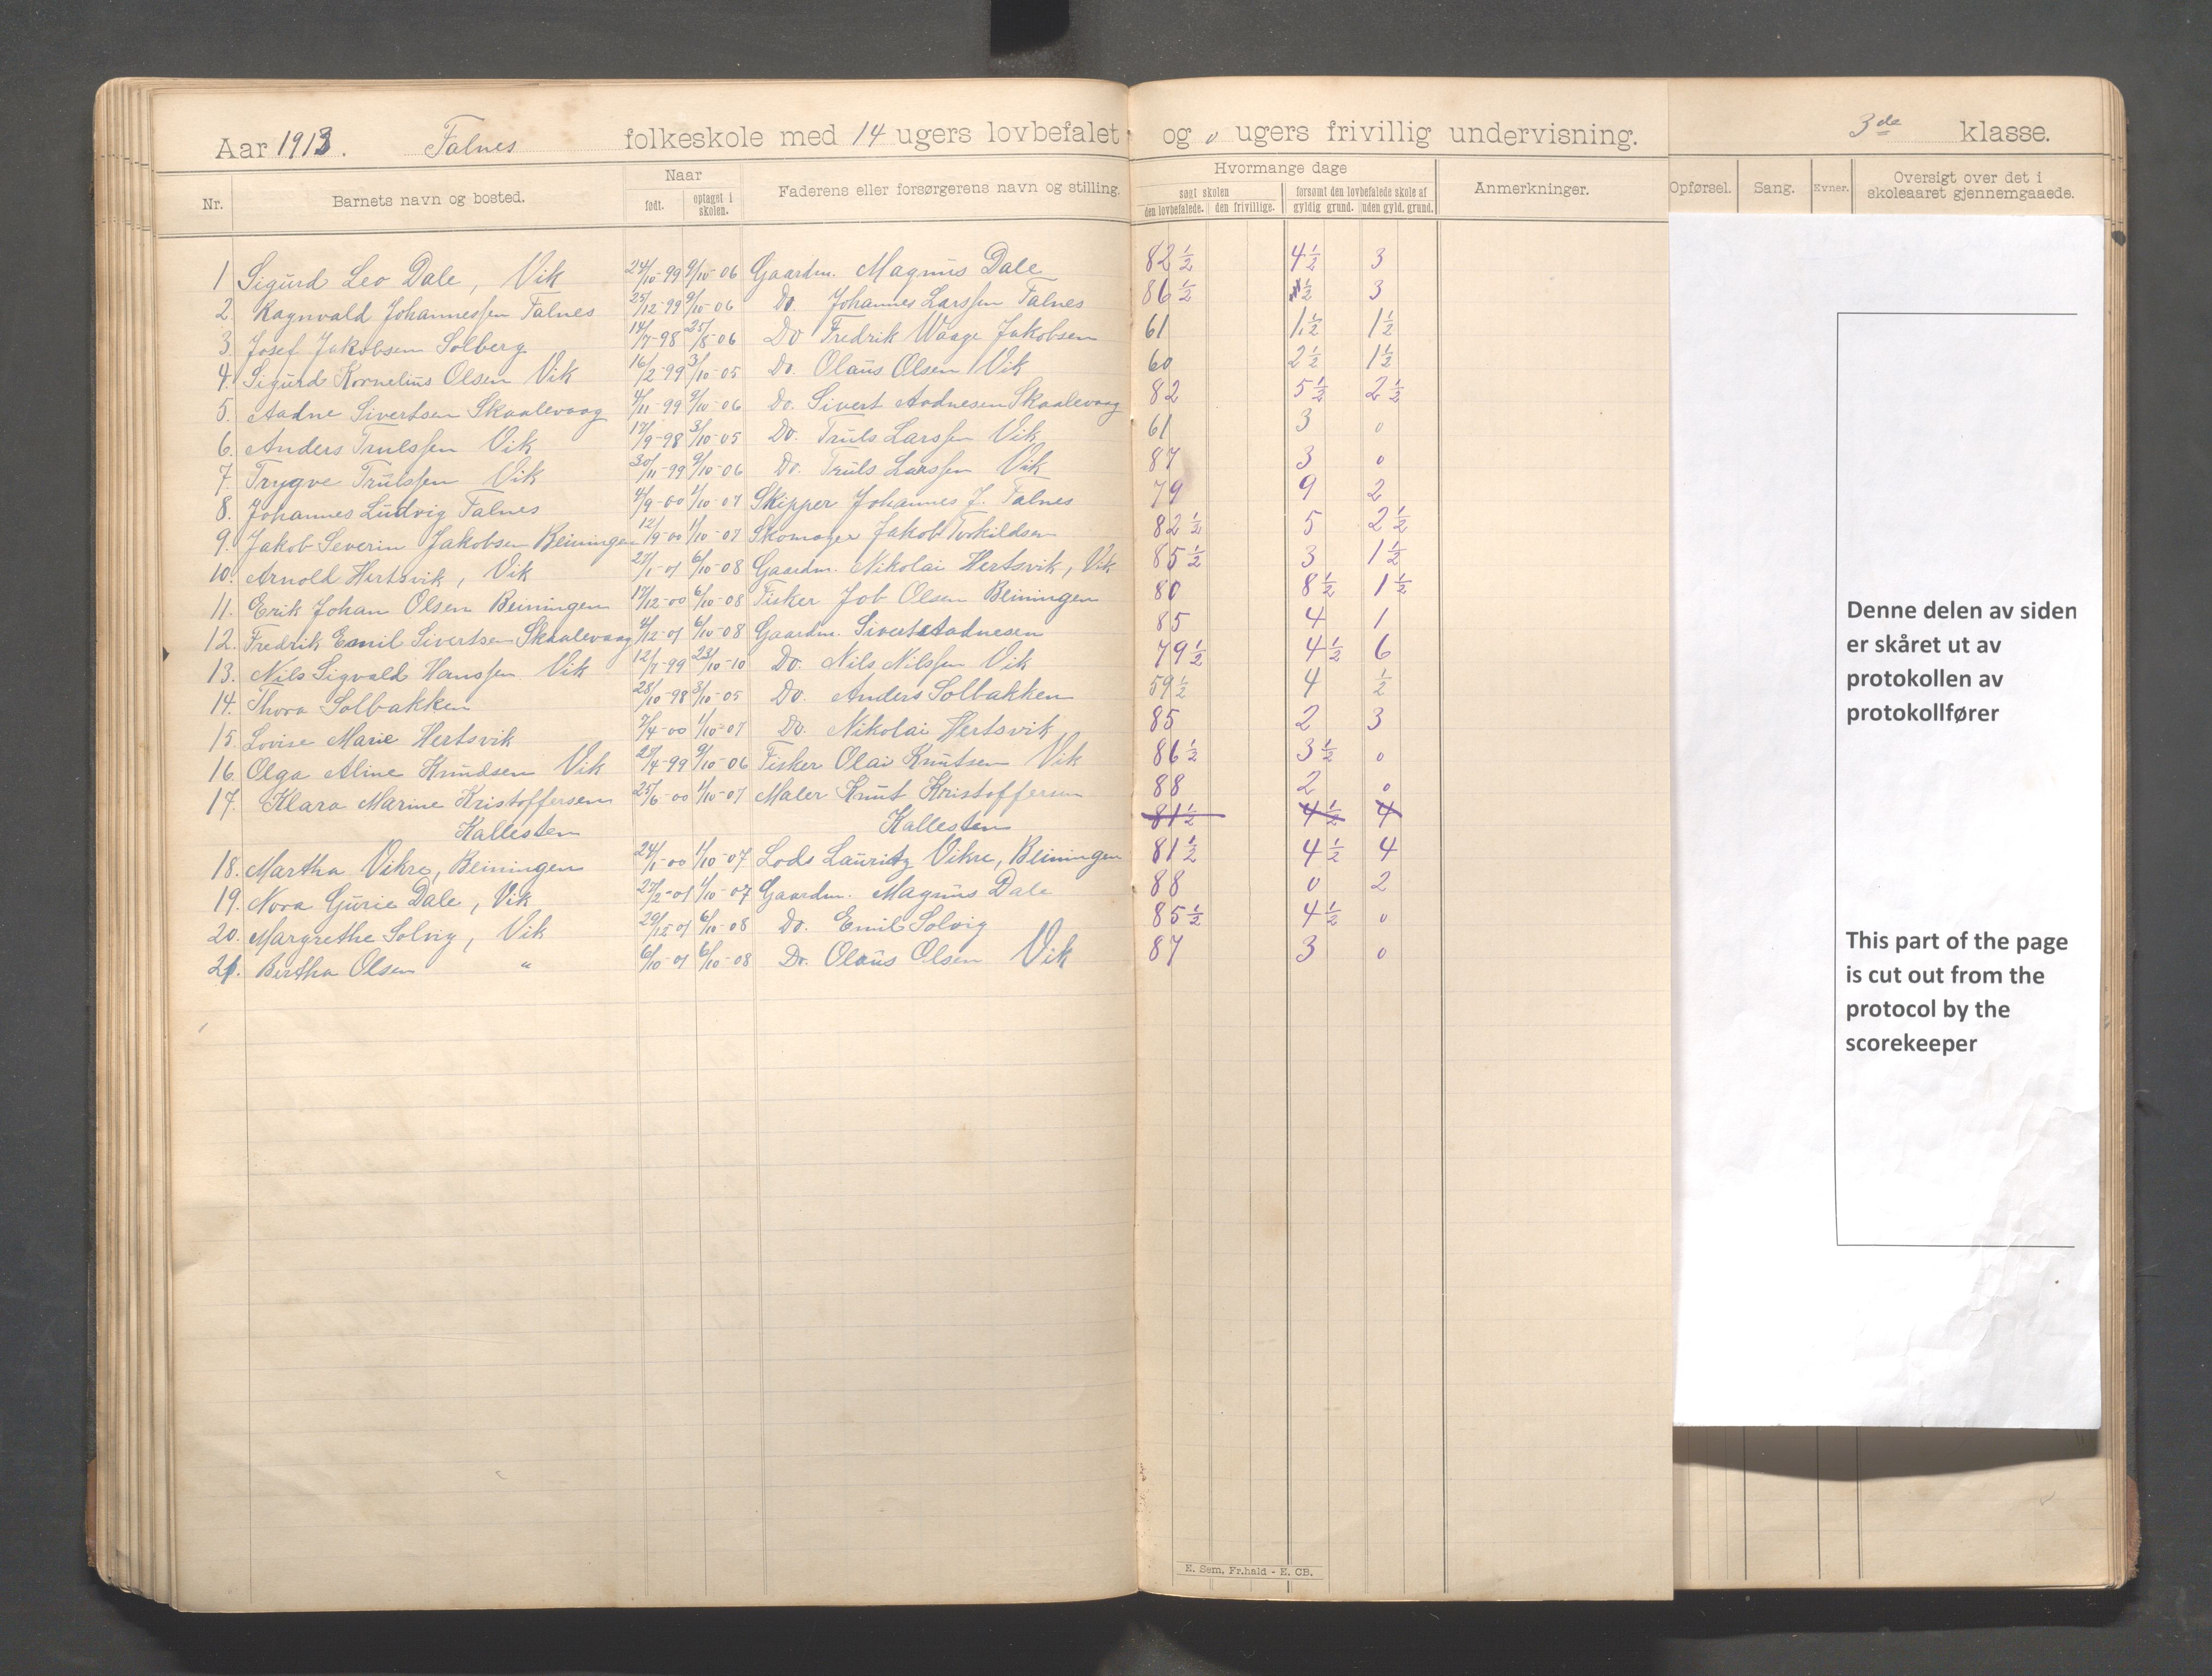 Aar 1913. Falnes folkeskole med 14 ugers lovbefalet og 0 ugers frivillig undervisning. 3de klasse.
Nr. Barnets navn og bosted. Naar født. optaget i skolen. Faderens eller forsørgerens navn og stilling. Hvormange dage søgt skolen den lovbefalede. den frivillige. forsømt den lovbefalede skole af gyldig grund. uden gyld. grund. Anmerkninger. Opførsel. Sang. Evner. Oversigt over det i skoleaaret gjennemgaaede.
1 Sigurd Leo Dale, Vik 24/10-99 9/10-06 Gaardm. Magnus Dale 82 1/2 4 1/2 3
2. Ragnvald Johannessen Falnes 25/12-99 9/10-06 Do. Johannes Larssen Falnes 86 1/2 1/2 3
3. Josef Jakobsen Solberg 14/7-98 25/8-06 Do Fredrik Waage Jakobsen 61 1 1/2 1 1/2
4. Sigurd Kornelius Olsen Vik 16/2-99 3/10-05 Do. Olaus Olsen Vik 60 2 1/2 1 1/2
5. Aadne Sivertsen Skaalevaag 4/11-99 9/10-06 Do. Sivert Aadnesen Skaalevaag 82 5 1/2 2 1/2
6. Anders Trulssen Vik 17/9-98 3/10-05 Do. Truls Larssen Vik 61 3 0
7. Trygve Trulssen Vik 30/11-99 9/10-06 Do. Truls Larssen Vik 87 3 0
8. Johannes Ludvig Falnes 4/9-00 1/10-07 Skipper Johannes J. Falnes 79 9 2
9. Jakob Severin Jakobsen Beiningen 12/9-00 1/10-07 Skomager Jakob Torkildsen 82 1/2 5 2 1/2
10. Arnold Hertsvik, Vik 27/1-01 6/10-08 Gaardm. Nikolai Hertsvik, Vik 85 1/2 3 1 1/2
11. Erik Johan Olsen Beiningen 17/12-00 6/10-08 Fisker Job Olsen Beiningen 80 8 1/2 1 1/2
12. Fredrik Emil Sivertsen Skaalevaag 4/12-01 6/10-08 Gaardm. Sivert Aadnesen 85 4 1
13. Nils Sigvald Hanssen Vik 12/7-99 23/10-10 Do. Nils Nilssen Vik 79 1/2 4 1/2 6
14. Thora Solbakken 28/10-98 3/10-05 Do. Anders Solbakken 59 1/2 4 1/2
15. Lovise Marie Hertsvik 7/4-00 1/10-07 Do. Nikolai Hertsvik 85 2 3
16. Olga Aline Knudsen Vik 27/4-99 9/10-06 Fisker Olai Knutsen Vik 86 1/2 3 1/2 0
17. Klara Marine Kristoffersen 25/6-00 1/10-07 Maler Knut Kristoffersen 88 2 0
Kallesten Kallesten 81 1/2 4 1/2 4
18. Martha Vikre, Beiningen 24/1-00 1/10-07 Lods Lauritz Vikre, Beiningen 81 1/2 4 1/2 4
19. Nora Gurie Dale, Vik 27/2-01 1/10-07 Gaardm. Magnus Dale 88 0 2
20. Margrethe Solvig, Vik 29/12-01 6/10-08 Do. Emil Solvig 85 1/2 4 1/2 0
21. Bertha Olsen " 6/10-01 6/10-08 Do. Olaus Olsen Vik 87 3 0
E. Sem, Fr.hald - E. CB.
Denne delen av siden
er skåret ut av
protokollen av
protokollfører
This part of the page
is cut out from the
protocol by the
scorekeeper